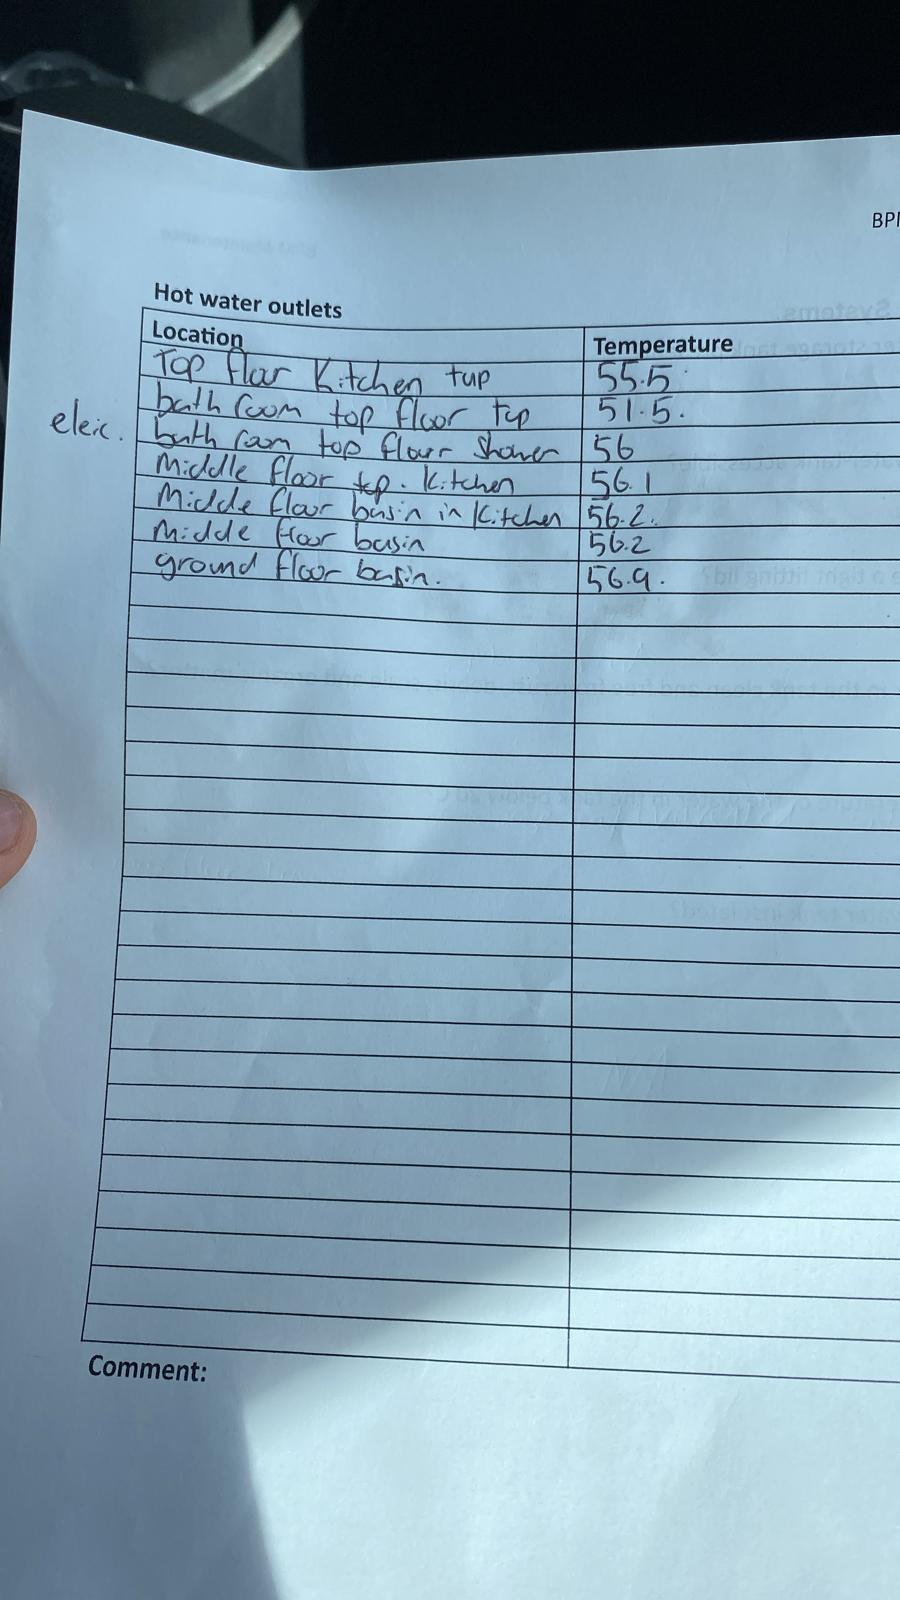 BPM
Hot water outlets
Location Temperature
Top floor Kitchen tap 55.5
bath room top floor tap 51.5.
eleic. bath room top floor shower 56
Middle floor tap. Kitchen 56.1
Midde floor basin in Kitchen 56.2.
Midde floor basin 56.2
ground floor basin. 56.9.
Comment: